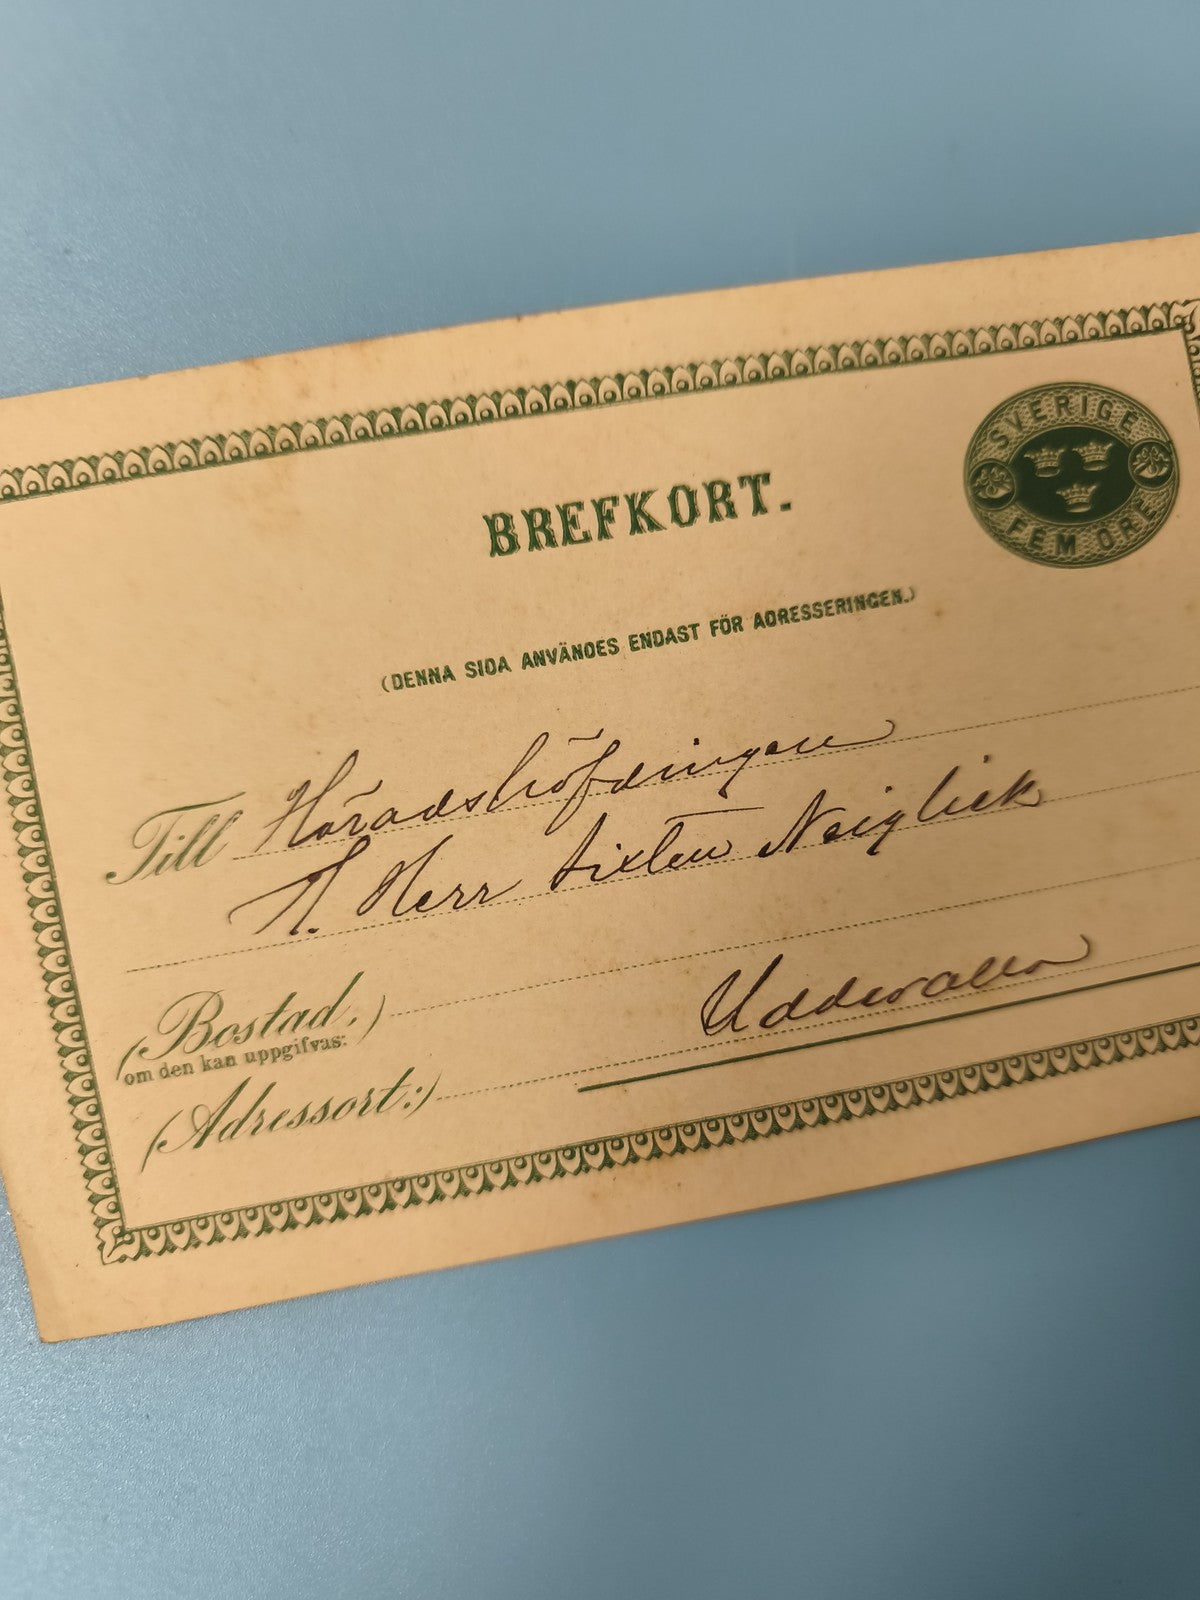 SVERIGE
FEM ÖRE
BREFKORT.
(DENNA SIDA ANVÄNDES ENDAST FÖR ADRESSERINGEN.)
Till Häradshöfdingen
H. Herr Sixten Neiglick
(Bostad.)
om den kan uppgifvas:
Uddevalla
(Adressort:)